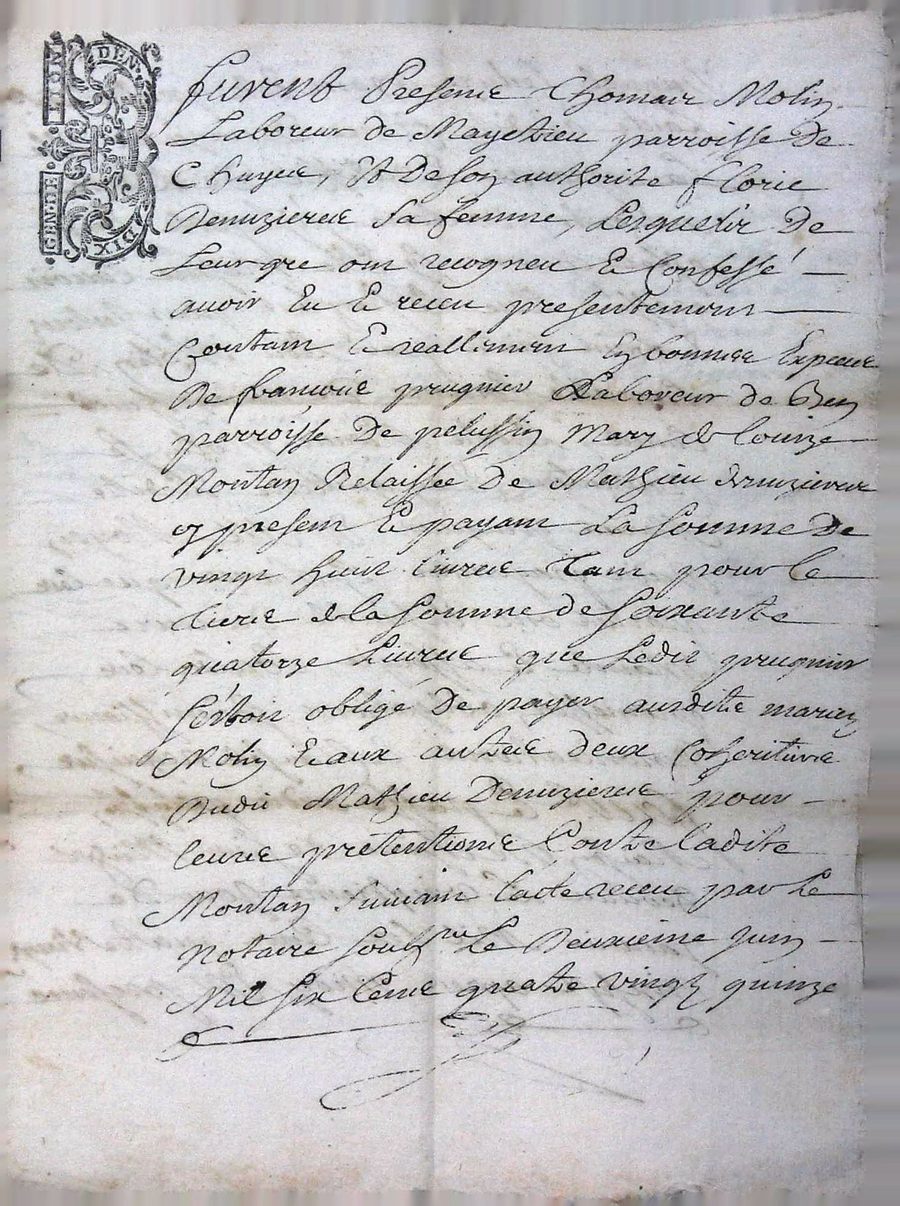 GEN. DE LION
DIX DEN.
furent Presens Thomas Molin
Laboreur de parroisse De
Chuyes, Et De son authorite florie
Denuzieres sa femme, Lesquels De
Leur gre ont recogneu Et Confessé
avoir Eu Et receu presentement
Contant Et reallement En bonnes Especes
De francois prugnier Laboreur de
parroisse De pelussin Mary de Louize
Montan Relaissee De Mathieu denuzieres
cy present Et payant La Somme De
vingt huit livres Tant pour le
Tiers de la Somme de Soixante
quatorze Livres que Ledit prugnier
S'estoit obligé De payer ausdits mariez
Molin Et aux autres deux Coheritiers
Dudit Mathieu Denuzieres pour
leurs pretentions Contre ladite
Montan Suivant l'acte receu par Le
Notaire Soubsne Le Deuxieme Juin
Mil Six Cens quatre vingtz quinze